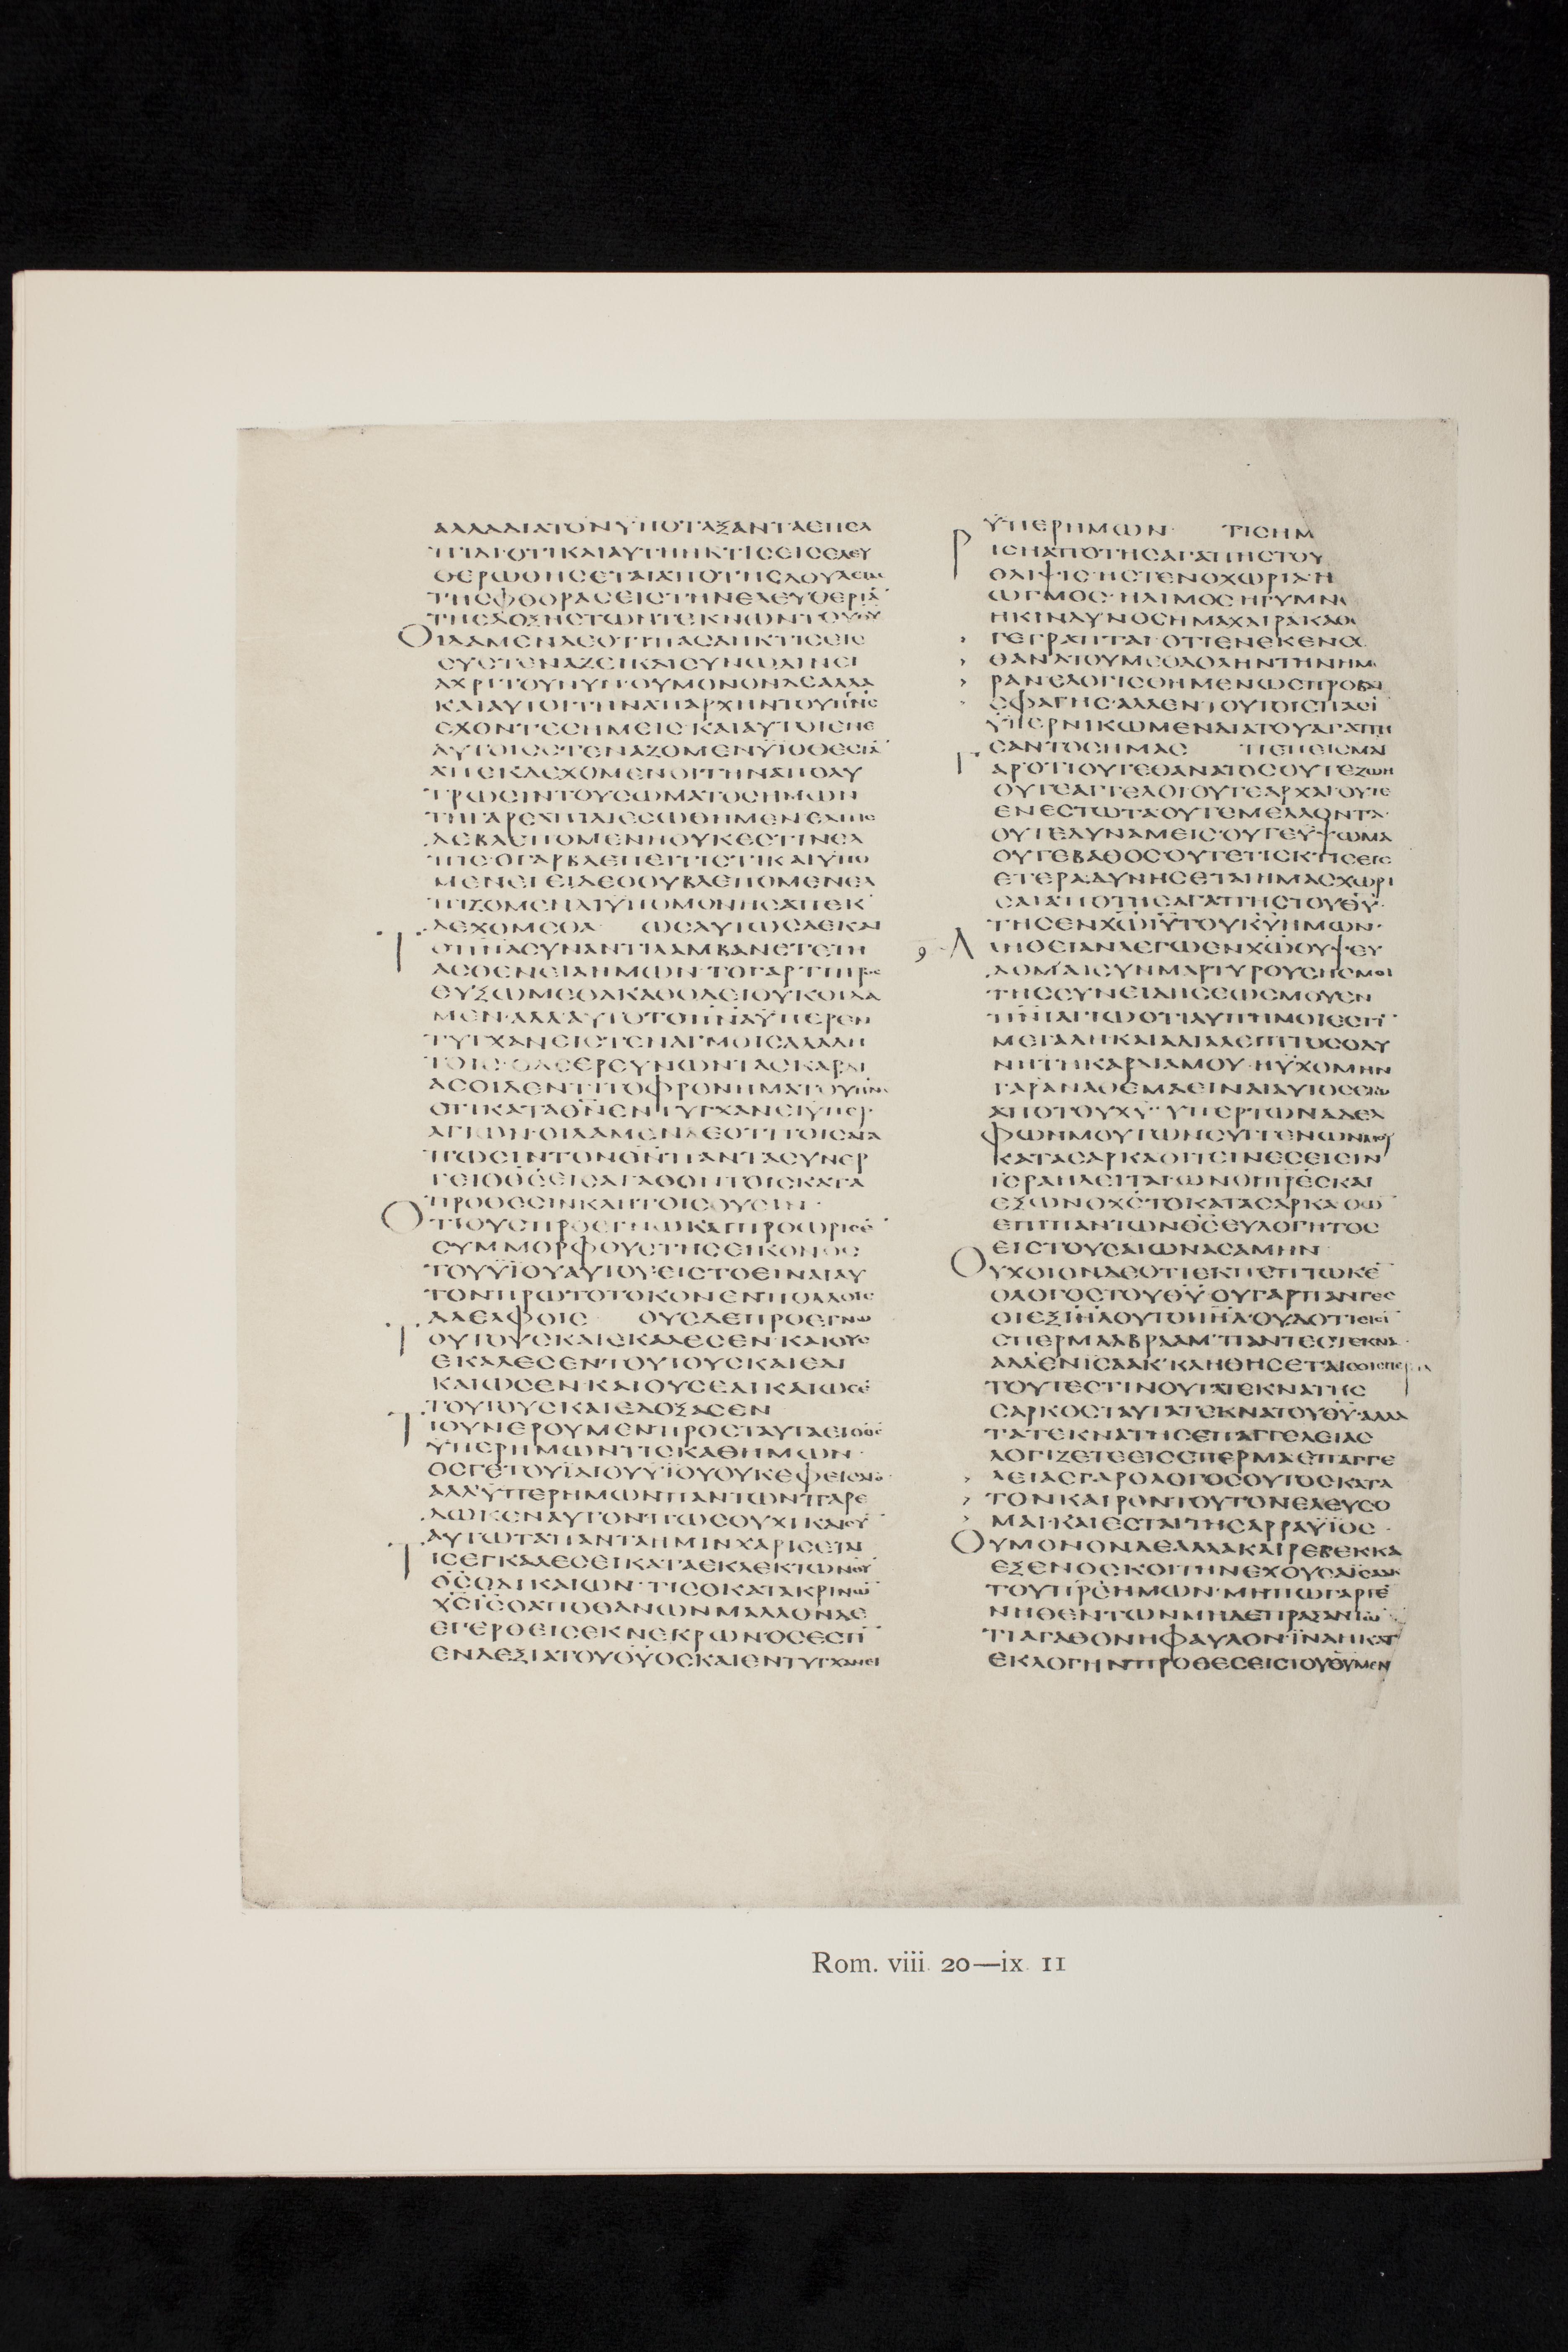 ΑΛΛΑΔΙΑΤΟΝΥΠΟΤΑΞΑΝΤΑΕΠΕΛ
ΠΙΔΙΟΤΙΚΑΙΑΥΤΗΗΚΤΙΣΕΙΣΕΛΕΥ
ΘΕΡΩΘΗΣΕΤΑΙΑΠΟΤΗΣΔΟΥΛΕΙΑΣ
ΤΗΣΦΘΟΡΑΣΕΙΣΤΗΝΕΛΕΥΘΕΡΙΑ̅
ΤΗΣΔΟΞΗΣΤΩΝΤΕΚΝΩΝΤΟΥΘ̅Υ̅
ΟΙΔΑΜΕΝΔΕΟΤΙΠΑΣΑΗΚΤΙΣΕΙΣ
ΣΥΣΤΕΝΑΖΕΙΚΑΙΣΥΝΩΔΙΝΕΙ
ΑΧΡΙΤΟΥΝΥΝ·ΟΥΜΟΝΟΝΔΕΑΛΛΑ
ΚΑΙΑΥΤΟΙΤΗΝΑΠΑΡΧΗΝΤΟΥΠ̅Ν̅Σ̅
ΕΧΟΝΤΕΣΗΜΕΙΣΚΑΙΑΥΤΟΙΕΝΕ
ΑΥΤΟΙΣΣΤΕΝΑΖΟΜΕΝΫΙΟΘΕΣΙΑ̅
ΑΠΕΚΔΕΧΟΜΕΝΟΙΤΗΝΑΠΟΛΥ
ΤΡΩΣΙΝΤΟΥΣΩΜΑΤΟΣΗΜΩΝ
ΤΗΓΑΡΕΛΠΙΔΙΕΣΩΘΗΜΕΝΕΛΠΙΣ
ΔΕΒΛΕΠΟΜΕΝΗΟΥΚΕΣΤΙΝΕΛ
ΠΙΣ·ΟΓΑΡΒΛΕΠΕΙΤΙΣΤΙΚΑΙΥΠΟ
ΜΕΝΕΙΕΙΔΕΟΟΥΒΛΕΠΟΜΕΝΕΛ
ΠΙΖΟΜΕΝΔΙΥΠΟΜΟΝΗΣΑΠΕΚ
ΔΕΧΟΜΕΘΑ ΩΣΑΥΤΩΣΔΕΚΑΙ
ΤΟΠ̅Ν̅Α̅ΣΥΝΑΝΤΙΛΑΜΒΑΝΕΤΕΤΗ
ΑΣΘΕΝΕΙΑΗΜΩΝ·ΤΟΓΑΡΤΙΠΡΟΣ
ΕΥΞΩΜΕΘΑΚΑΘΟΔΕΙΟΥΚΟΙΔΑ
ΜΕΝ·ΑΛΛΑΥΤΟΤΟΠ̅Ν̅Α̅ΫΠΕΡΕΝ
ΤΥΓΧΑΝΕΙΣΤΕΝΑΓΜΟΙΣΑΛΑΛΗ
ΤΟΙΣ·ΟΔΕΕΡΕΥΝΩΝΤΑΣΚΑΡΔΙ
ΑΣΟΙΔΕΝΤΙΤΟΦΡΟΝΗΜΑΤΟΥΠ̅Ν̅Σ̅
ΟΤΙΚΑΤΑΘ̅Ν̅ΕΝΤΥΓΧΑΝΕΙΫΠΕΡ
ΑΓΙΩΝ·ΟΙΔΑΜΕΝΔΕΟΤΙΤΟΙΣΑΓΑ
ΠΩΣΙΝΤΟΝΘ̅Ν̅ΠΑΝΤΑΣΥΝΕΡ
ΓΕΙΟΘ̅Σ̅ΕΙΣΑΓΑΘΟΝΤΟΙΣΚΑΤΑ
ΠΡΟΘΕΣΙΝΚΛΗΤΟΙΣΟΥΣΙΝ·
ΟΤΙΟΥΣΠΡΟΕΓΝΩΚΑΙΠΡΟΩΡΙΣΕ̅
ΣΥΜΜΟΡΦΟΥΣΤΗΣΕΙΚΟΝΟΣ
ΤΟΥΫΙΟΥΑΥΤΟΥ·ΕΙΣΤΟΕΙΝΑΙΑΥ
ΤΟΝΠΡΩΤΟΤΟΚΟΝΕΝΠΟΛΛΟΙΣ
ΑΔΕΛΦΟΙΣ ΟΥΣΔΕΠΡΟΕΓΝΩ
ΤΟΥΤΟΥΣΚΑΙΕΚΑΛΕΣΕΝ·ΚΑΙΟΥΣ
ΕΚΑΛΕΣΕΝΤΟΥΤΟΥΣΚΑΙΕΔΙ
ΚΑΙΩΣΕΝ·ΚΑΙΟΥΣΕΔΙΚΑΙΩΣΕ̅
ΤΟΥΤΟΥΣΚΑΙΕΔΟΞΑΣΕΝ
ΤΙΟΥΝΕΡΟΥΜΕΝΠΡΟΣΤΑΥΤΑΕΙΟΘ̅Σ̅
ΫΠΕΡΗΜΩΝΤΙΣΚΑΘΗΜΩΝ·
ΟΣΓΕΤΟΥΪΔΙΟΥΫΙΟΥΟΥΚΕΦΕΙΣΑΤΟ·
ΑΛΛΫΠΕΡΗΜΩΝΠΑΝΤΩΝΠΑΡΕ
ΔΩΚΕΝΑΥΤΟΝΠΩΣΟΥΧΙΚΑΙΣΥ̅
ΑΥΤΩΤΑΠΑΝΤΑΗΜΙΝΧΑΡΙΣΕΤΑΙ
ΤΙΣΕΓΚΑΛΕΣΕΙΚΑΤΑΕΚΛΕΚΤΩΝΘ̅Υ̅
Θ̅Σ̅ΟΔΙΚΑΙΩΝ·ΤΙΣΟΚΑΤΑΚΡΙΝΩ̅
Χ̅Σ̅Ι̅Σ̅ΟΑΠΟΘΑΝΩΝΜΑΛΛΟΝΔΕ
ΕΓΕΡΘΕΙΣΕΚΝΕΚΡΩΝΟΣΕΣΤΙ̅
ΕΝΔΕΞΙΑΤΟΥΘ̅Υ̅ΟΣΚΑΙΕΝΤΥΓΧΑΝΕΙ
ΫΠΕΡΗΜΩΝ ΤΙΣΗΜ
ΡΙΣΕΙΑΠΟΤΗΣΑΓΑΠΗΣΤΟΥ
ΘΛΙΨΙΣ·ΗΣΤΕΝΟΧΩΡΙΑΗ
ΩΓΜΟΣ·ΗΛΙΜΟΣΗΓΥΜΝ
ΗΚΙΝΔΥΝΟΣΗΜΑΧΑΙΡΑΚΑΘΩ
ΓΕΓΡΑΠΤΑΙΟΤΙΕΝΕΚΕΝΣ
ΘΑΝΑΤΟΥΜΕΘΑΟΛΗΝΤΗΝΗΜΕ
ΡΑΝΕΛΟΓΙΣΘΗΜΕΝΩΣΠΡΟΒΑ
ΣΦΑΓΗΣ·ΑΛΛΕΝΤΟΥΤΟΙΣΠΑΣΙ̅
ΫΠΕΡΝΙΚΩΜΕΝΔΙΑΤΟΥΑΓΑΠΗ
ΣΑΝΤΟΣΗΜΑΣ ΠΕΠΕΙΣΜΑΙ
ΓΑΡΟΤΙΟΥΤΕΘΑΝΑΤΟΣΟΥΤΕΖΩΗ
ΟΥΤΕΑΓΓΕΛΟΙΟΥΤΕΑΡΧΑΙΟΥΤΕ
ΕΝΕΣΤΩΤΑΟΥΤΕΜΕΛΛΟΝΤΑ·
ΟΥΤΕΔΥΝΑΜΕΙΣ·ΟΥΤΕΫΨΩΜΑ
ΟΥΤΕΒΑΘΟΣΟΥΤΕΤΙΣΚΤΙΣΕΙΣ
ΕΤΕΡΑΔΥΝΗΣΕΤΑΙΗΜΑΣΧΩΡΙ
ΣΑΙΑΠΟΤΗΣΑΓΑΠΗΣΤΟΥΘ̅Υ̅·
ΤΗΣΕΝΧ̅Ω̅Ι̅Υ̅ΤΟΥΚ̅Υ̅ΗΜΩΝ·
ΑΛΗΘΕΙΑΝΛΕΓΩΕΝΧ̅Ω̅ΟΥΨΕΥ
ΔΟΜΑΙΣΥΝΜΑΡΤΥΡΟΥΣΗΣΜΟΙ
ΤΗΣΣΥΝΕΙΔΗΣΕΩΣΜΟΥΕΝ
Π̅Ν̅Ι̅ΑΓΙΩΟΤΙΛΥΠΗΜΟΙΕΣΤΙ̅
ΜΕΓΑΛΗΚΑΙΑΔΙΑΛΕΙΠΤΟΣΟΔΥ
ΝΗΤΗΚΑΡΔΙΑΜΟΥ·ΗΥΧΟΜΗΝ
ΓΑΡΑΝΑΘΕΜΑΕΙΝΑΙΑΥΤΟΣΕΓΩ
ΑΠΟΤΟΥΧ̅Υ̅ΫΠΕΡΤΩΝΑΔΕΛ
ΦΩΝΜΟΥΤΩΝΣΥΓΓΕΝΩΝΜΟΥ
ΚΑΤΑΣΑΡΚΑΟΙΤΕΙΝΕΣΕΙΣΙΝ
ΪΣΡΑΗΛΕΙΤΑΙ·ΩΝΟΙΠ̅Ρ̅Ε̅Σ̅ΚΑΙ
ΕΞΩΝΟΧ̅Σ̅ΤΟΚΑΤΑΣΑΡΚΑΟΩ̅
ΕΠΙΠΑΝΤΩΝΘ̅Σ̅ΕΥΛΟΓΗΤΟΣ
ΕΙΣΤΟΥΣΑΙΩΝΑΣΑΜΗΝ
ΟΥΧΟΙΟΝΔΕΟΤΙΕΚΠΕΠΤΩΚΕ̅
ΟΛΟΓΟΣΤΟΥΘ̅Υ̅·ΟΥΓΑΡΠΑΝΤΕΣ
ΟΙΕΞΙ̅Η̅Λ̅ΟΥΤΟΙΙ̅Η̅Λ̅·ΟΥΔΟΤΙΕΙΣΙ̅
ΣΠΕΡΜΑΑΒΡΑΑΜ·ΠΑΝΤΕΣΤΕΚΝΑ·
ΑΛΛΕΝΙΣΑΑΚ·ΚΛΗΘΗΣΕΤΑΙΣΟΙΣΠΕΡΜΑ
ΤΟΥΤΕΣΤΙΝΟΥΤΑΤΕΚΝΑΤΗΣ
ΣΑΡΚΟΣΤΑΥΤΑΤΕΚΝΑΤΟΥΘ̅Υ̅·ΑΛΛΑ
ΤΑΤΕΚΝΑΤΗΣΕΠΑΓΓΕΛΕΙΑΣ
ΛΟΓΙΖΕΤΕΕΙΣΣΠΕΡΜΑΕΠΑΓΓΕ
ΛΕΙΑΣΓΑΡΟΛΟΓΟΣΟΥΤΟΣΚΑΤΑ
ΤΟΝΚΑΙΡΟΝΤΟΥΤΟΝΕΛΕΥΣΟ
ΜΑΙ·ΚΑΙΕΣΤΑΙΤΗΣΑΡΡΑΫΙΟΣ·
ΟΥΜΟΝΟΝΔΕΑΛΛΑΚΑΙΡΕΒΕΚΚΑ
ΕΞΕΝΟΣΚΟΙΤΗΝΕΧΟΥΣΑΪΣΑΑΚ
ΤΟΥΠ̅Ρ̅Σ̅ΗΜΩΝ·ΜΗΠΩΓΑΡΓΕ
ΝΗΘΕΝΤΩΝΜΗΔΕΠΡΑΞΑΝΤΩ̅
ΤΙΑΓΑΘΟΝΗΦΑΥΛΟΝΪΝΑΗΚΑΤ
ΕΚΛΟΓΗΝΠΡΟΘΕΣΕΙΣΤΟΥΘ̅Υ̅ΜΕΝ
Rom. viii. 20—ix. 11